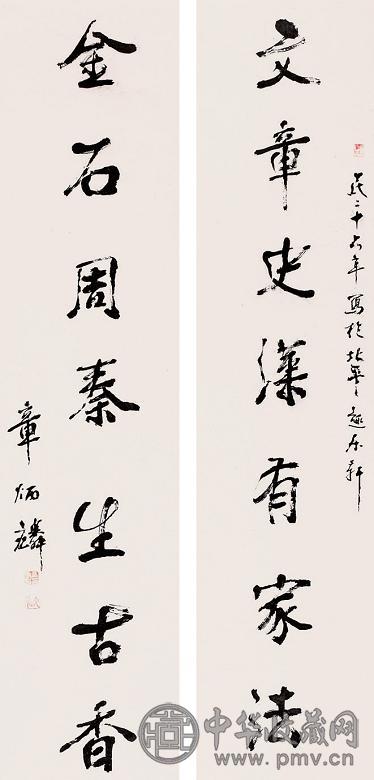 民三十六年寫於北平
文章史漢有家法
金石周秦生古香
章炳麟
中华收藏网
www.pmv.cn